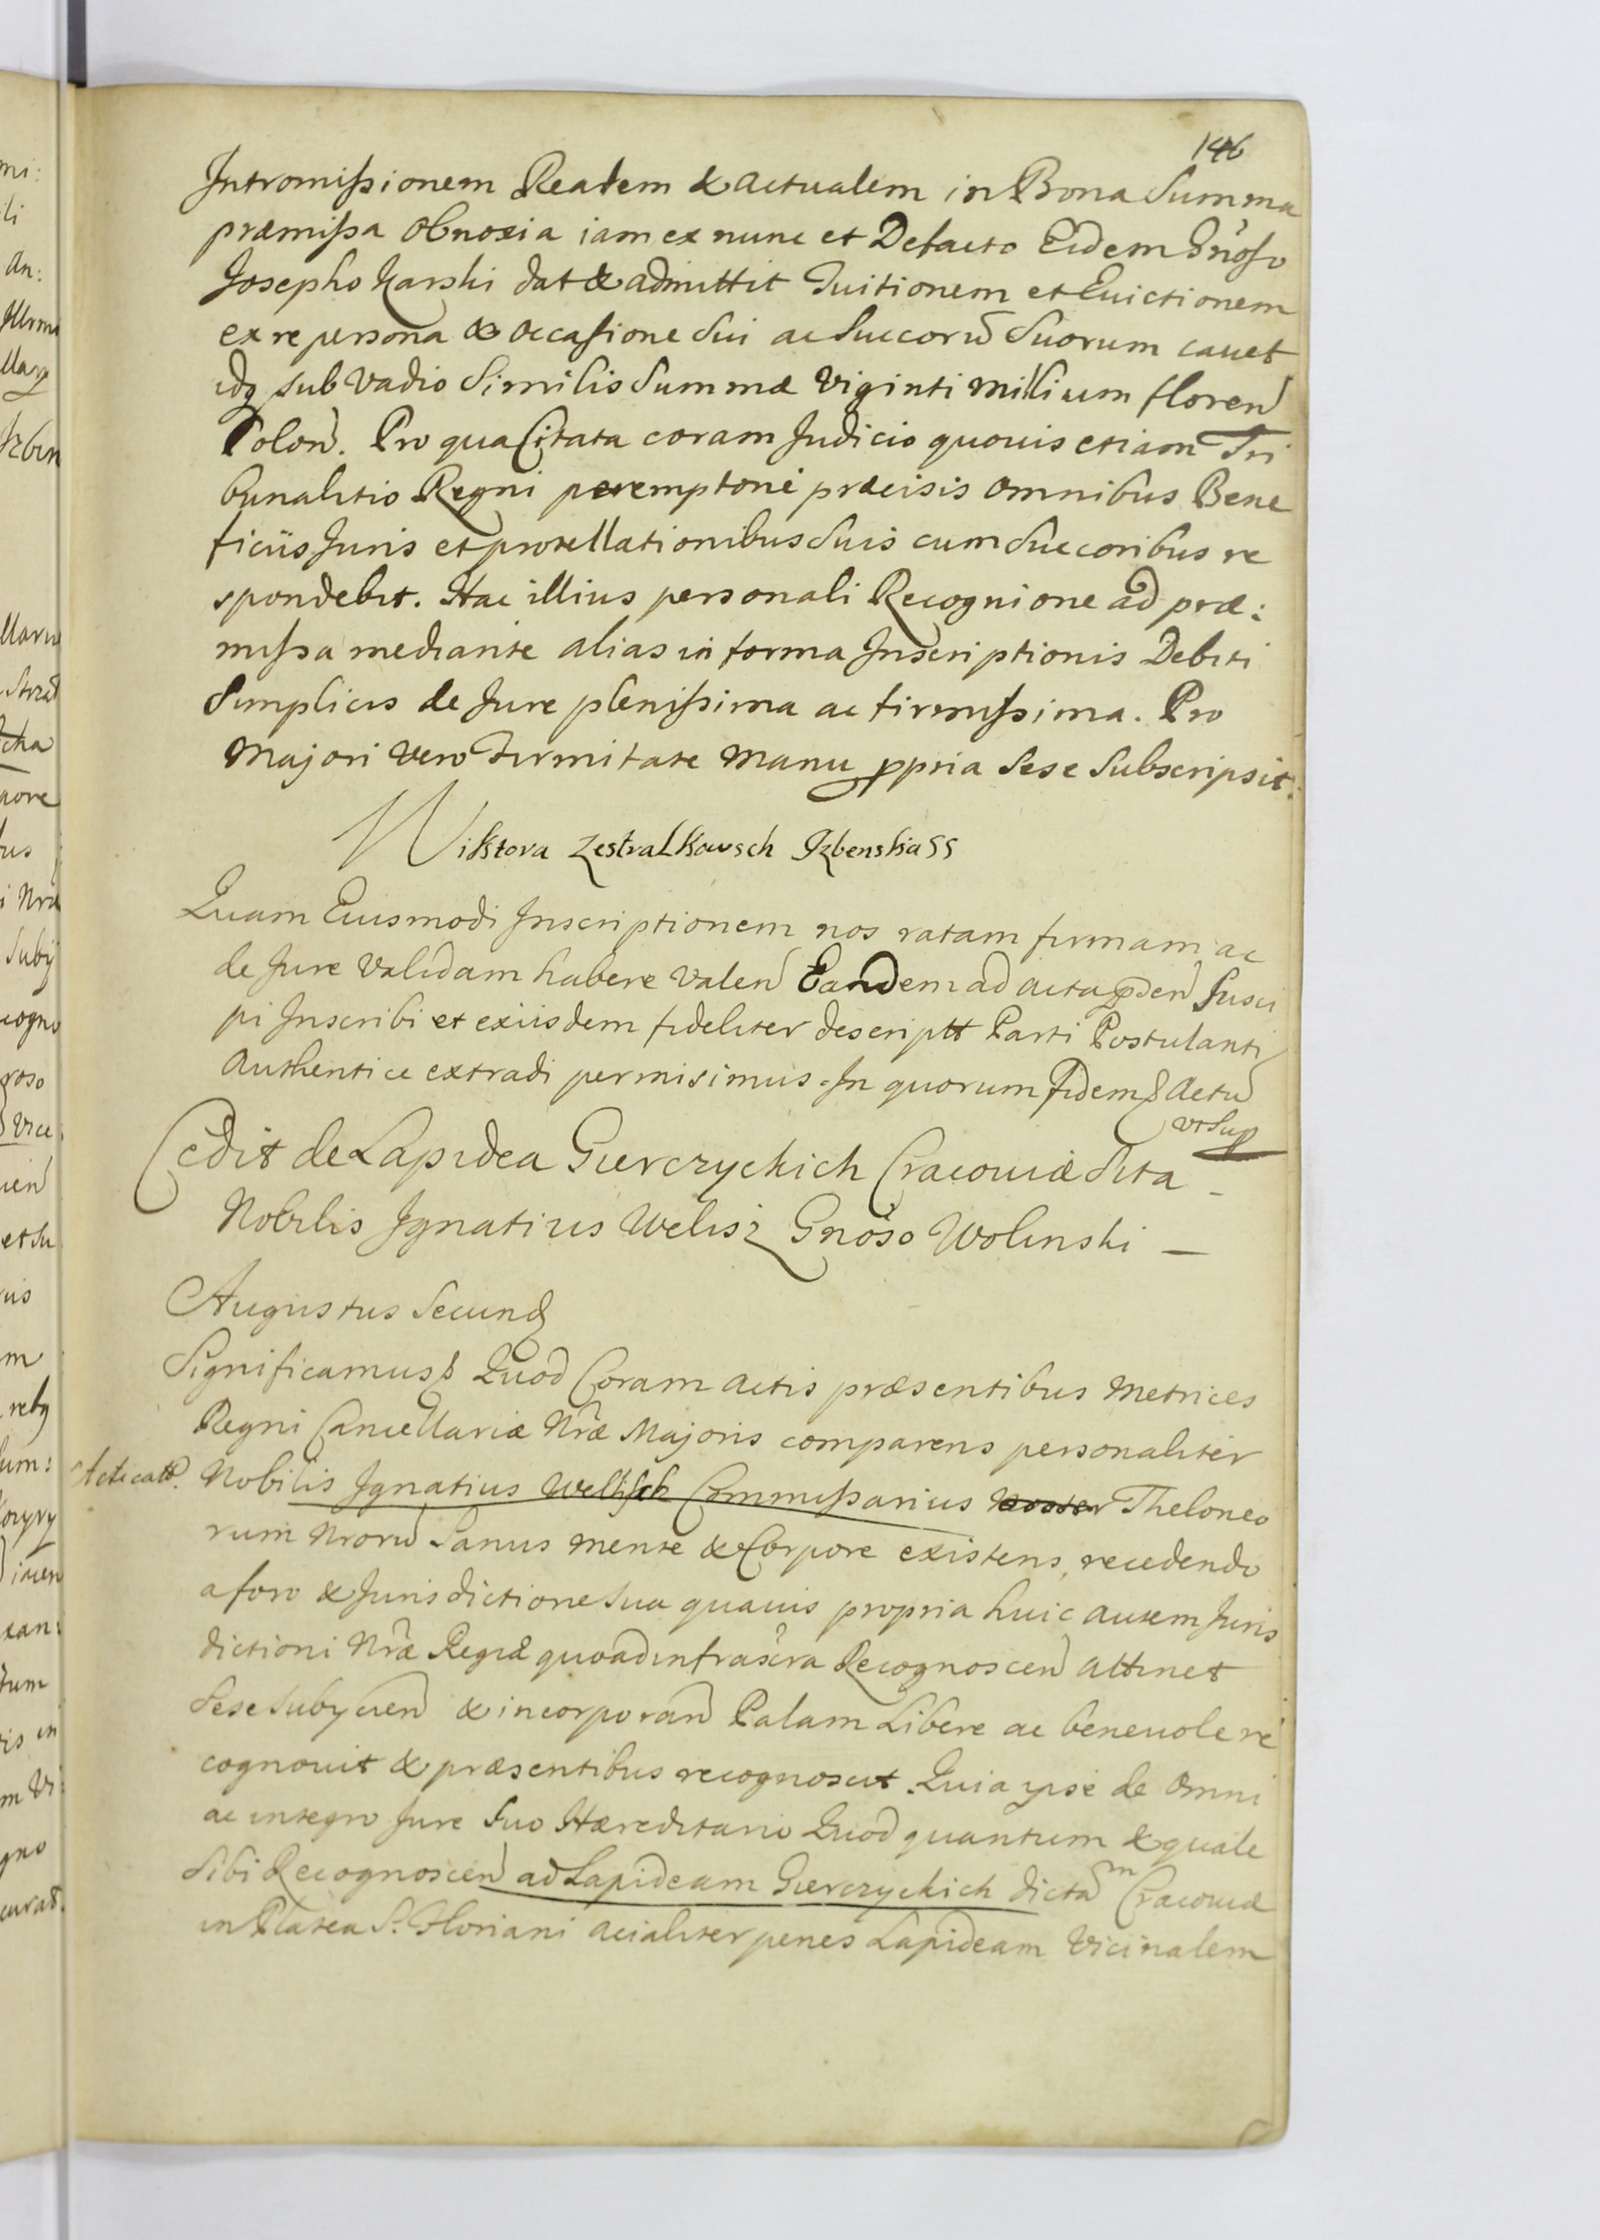 146
Intromissionem Realem & actualem in Bona Summa
præmissa obnoxia iam ex nunc et Defacto Eidem Gnoso
Josepho Karski dat & admittit Tuitionem et Euictionem
ex re persona & occasione sui ac Succorū Suorum cauet
idq sub Vadio Similis Summæ Viginti Millium floren
Polon. Pro qua Citata coram Judicio quouis etiam Tri
bunalitio Regni peremptorie præcisis omnibus Bene
ficiis Juris et protellationibus Suis cum Succoribus re
spondebit. Hac illius personali Recognione ad præ:
missa mediante alias in forma Inscriptionis Debiti
Simplicis de Jure plenissima ac firmissima. Pro
Majori vero Firmitate Manu ppria sese Subscripsit.
Wiktora Zestralkowsch Izbenska ss
Quam Eiusmodi Inscriptionem nos ratam firmam ac
de Jure Validam habere Valen Eandem ad acta pden susci
pi Inscribi et exiisdem fideliter descriptt Parti Postulanti
Authentice extradi permisimus. In quorum fidem Actu
vt Sup
Cedit de Lapidea Gierczyckich Cracouiæ Sita
Nobilis Ignatius Welisz Gnoso Wolinski
Augustus Secund
Significamus Quod Coram actis præsentibus Metrices
Regni Cancellariæ Nræ Majoris comparens personaliter
Acticatt. Nobilis Ignatius Wellisch Commissarius Theloneo
rum Nrorū Sanus mente & Corpore existens, recedendo
a foro & Jurisdictione sua quauis propria huic autem Juris
dictioni Nræ Regiæ quoad infrascra Recognoscen attinet
Sese Subycien & incorporan Palam Libere ac beneuole re
cognouit & præsentibus recognoscit. Quia ipse de omni
ac integro Jure Suo Hæreditario Quod quantum & quale
Sibi Recognoscen ad Lapideam Gierczyckich dictam Cracouiæ
in Platea S. Floriani acialiter penes Lapideam Vicinalem